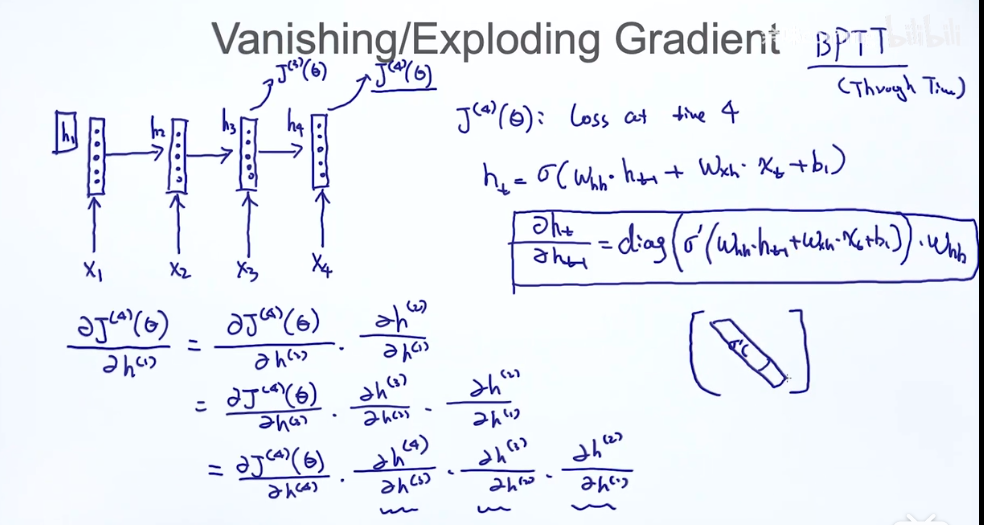 Vanishing/Exploding Gradient
BPTT
bilibili
(Through Time)
J⁽³⁾(θ)
J⁽⁴⁾(θ)
h₁
h₂
h₃
h₄
x₁
x₂
x₃
x₄
J⁽⁴⁾(θ): Loss at time 4
hₜ = σ(Whh · hₜ₋₁ + Wxh · xₜ + b₁)
∂hₜ/∂hₜ₋₁ = diag(σ'(Whh · hₜ₋₁ + Wxh · xₜ + b₁)) · Whh
∂J⁽⁴⁾(θ)/∂h⁽¹⁾ = ∂J⁽⁴⁾(θ)/∂h⁽²⁾ · ∂h⁽²⁾/∂h⁽¹⁾
= ∂J⁽⁴⁾(θ)/∂h⁽³⁾ · ∂h⁽³⁾/∂h⁽²⁾ · ∂h⁽²⁾/∂h⁽¹⁾
= ∂J⁽⁴⁾(θ)/∂h⁽⁴⁾ · ∂h⁽⁴⁾/∂h⁽³⁾ · ∂h⁽³⁾/∂h⁽²⁾ · ∂h⁽²⁾/∂h⁽¹⁾